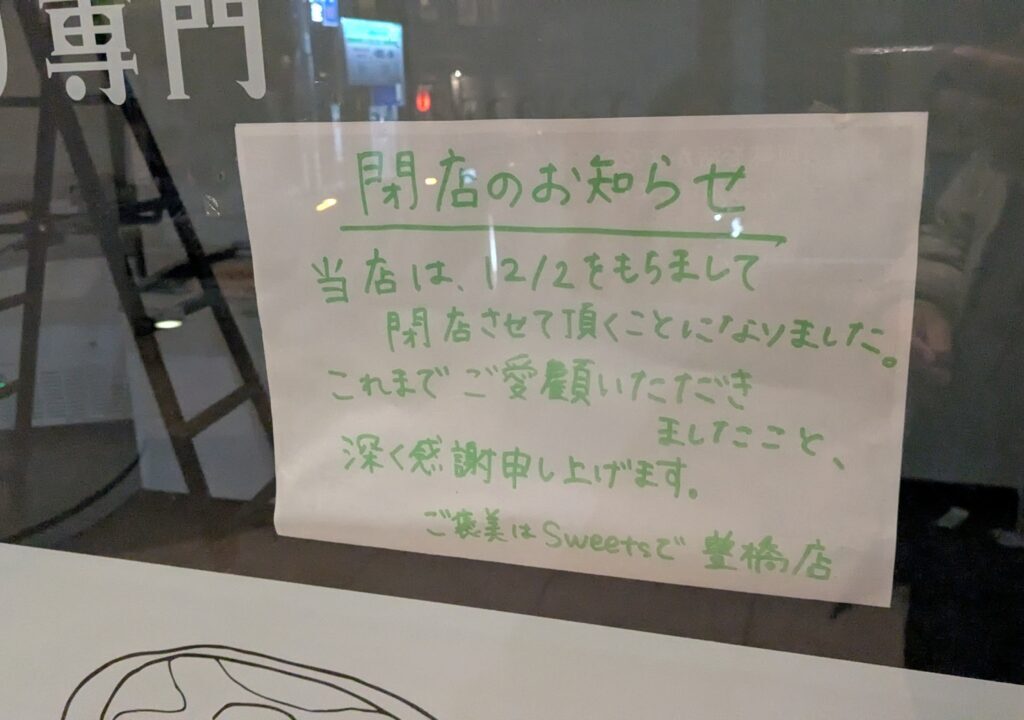 専門
閉店のお知らせ
当店は、12/2をもらまして
閉店させて頂くことになりました。
これまでご愛顧いただき
ましたこと、
深く感謝申し上げます。
ご褒美はSweetsで 豊橋店